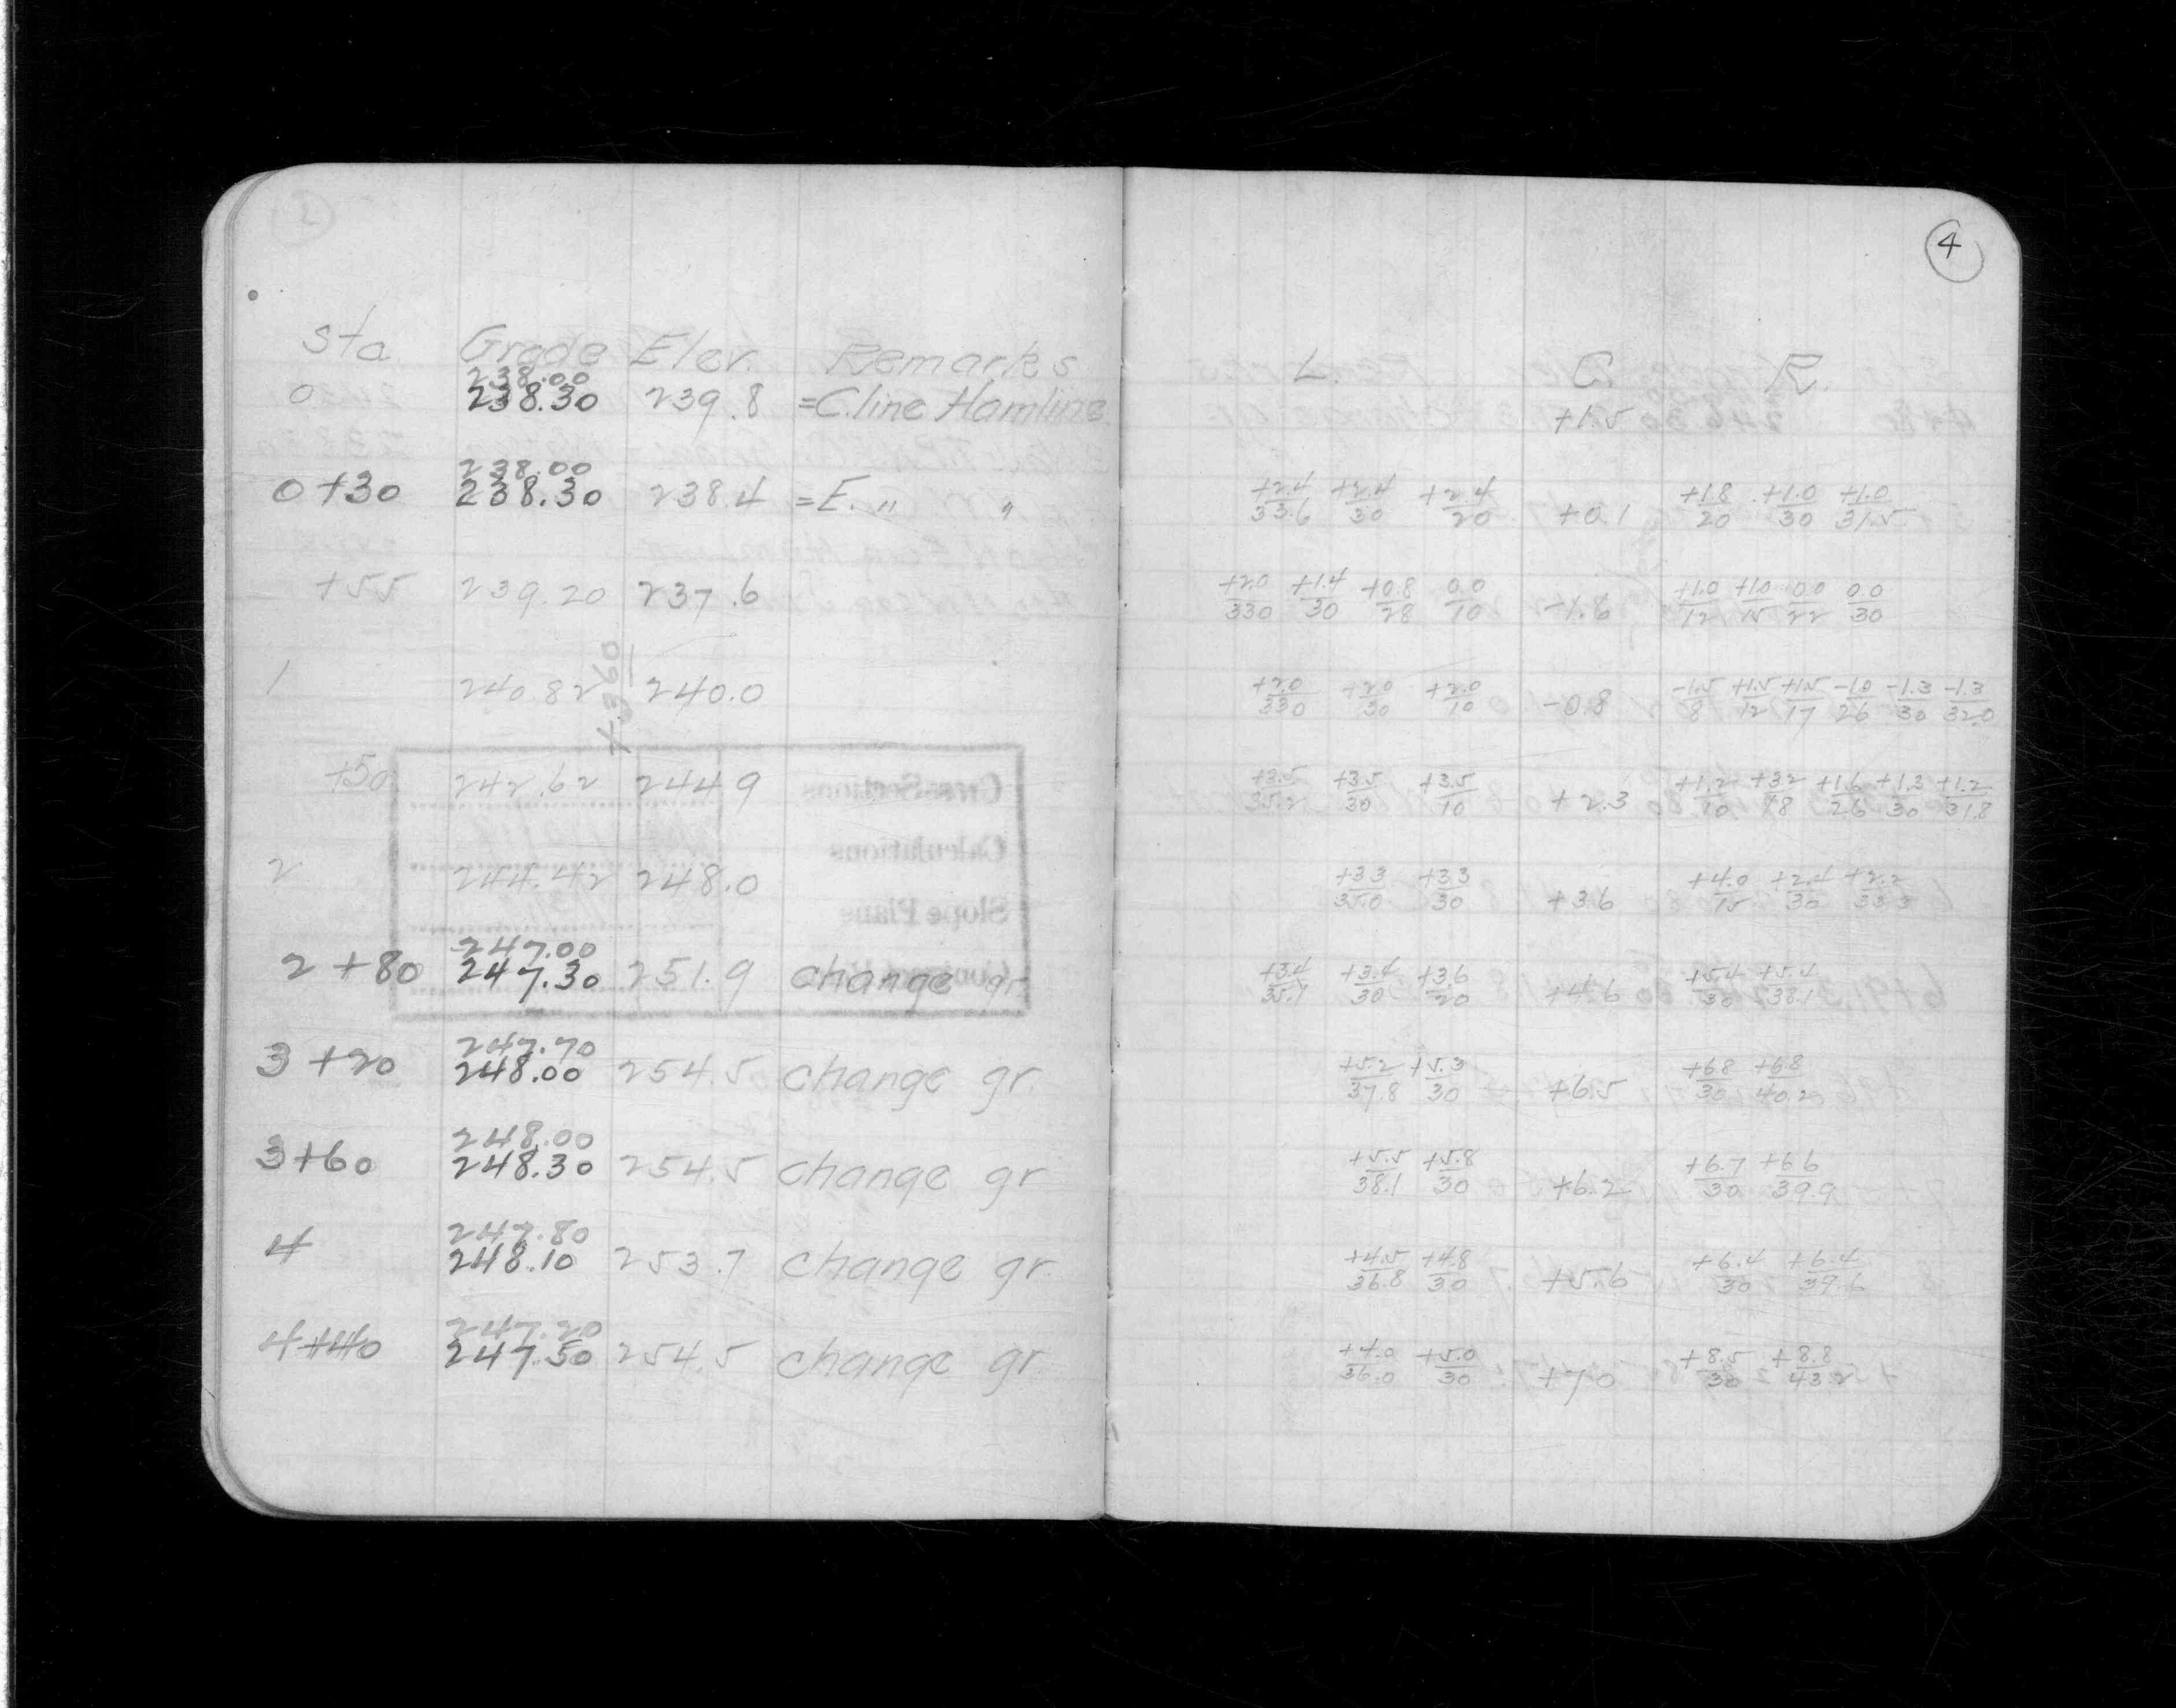 4
Sta Grade Elev. Remarks L. C. R.
238.00
0 238.30 239.8 =C.line Hamline +1.5
238.00
0+30 238.30 238.4 =E. " " +2.4/33.6 +2.4/30 +2.4/20 +0.1 +1.8/20 +1.0/30 +1.0/31.5
+55 239.20 237.6 +2.0/330 +1.4/30 +0.8/28 0.0/10 -1.6 +1.0/12 +1.0/15 0.0/22 0.0/30
1 240.82 240.0 +2.0/330 +2.0/30 +2.0/10 -0.8 -1.5/8 +1.5/12 +1.5/17 -1.0/26 -1.3/30 -1.3/32.0
+.3960
+50 242.62 244.9 +3.5/35.2 +3.5/30 +3.5/10 +2.3 +1.2/10 +3.2/18 +1.6/26 +1.3/30 +1.2/31.8
2 244.42 248.0 +3.3/35.0 +3.3/30 +3.6 +4.0/15 +2.4/30 +2.2/33.3
247.00
2+80 247.30 251.9 change gr. +3.4/35.1 +3.4/30 +3.6/20 +4.6 +5.4/30 +5.4/38.1
247.70
3+20 248.00 254.5 change gr. +5.2/37.8 +5.3/30 +6.5 +6.8/30 +6.8/40.2
248.00
3+60 248.30 254.5 change gr +5.5/38.1 +5.8/30 +6.2 +6.7/30 +6.6/39.9
247.80
4 248.10 253.7 change gr. +4.5/36.8 +4.8/30 +5.6 +6.4/30 +6.4/39.6
247.20
4+40 247.50 254.5 change gr. +4.0/36.0 +5.0/30 +7.0 +8.5/30 +8.8/43.2